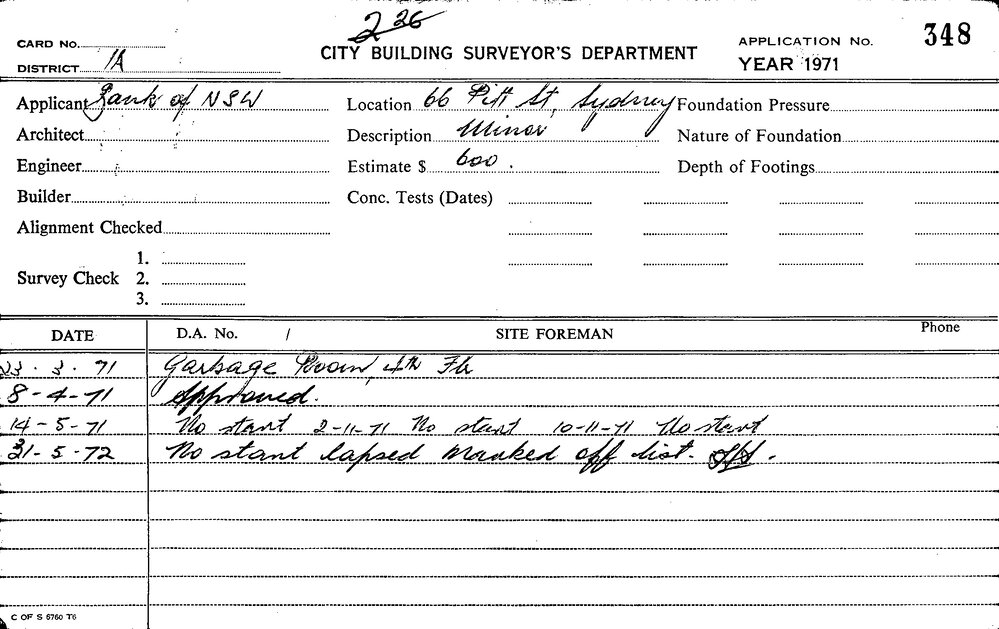 2 26
CARD No.
CITY BUILDING SURVEYOR'S DEPARTMENT
APPLICATION No. 348
DISTRICT 1A
YEAR 1971
Applicant Bank of NSW Location 66 Pitt St, Sydney Foundation Pressure
Architect Description Minor Nature of Foundation
Engineer Estimate $ 600. Depth of Footings
Builder Conc. Tests (Dates)
Alignment Checked
1.
Survey Check 2.
3.
DATE D.A. No. / SITE FOREMAN Phone
23. 3. 71 Garbage Room, 4th Flr
8-4-71 Approved.
14-5-71 No start 2-11-71 No start 10-11-71 No start
31-5-72 No start lapsed marked off list.
C OF S 6760 T6